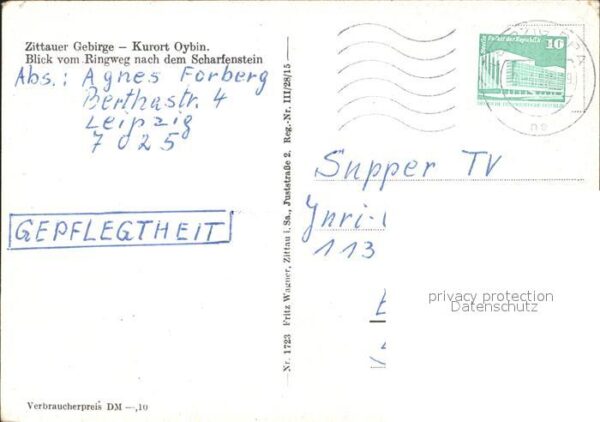 Zittauer Gebirge – Kurort Oybin.
Blick vom Ringweg nach dem Scharfenstein
Abs.: Agnes Forberg
Berthastr. 4
Leipzig
7025
GEPFLEGTHEIT
Verbraucherpreis DM —,10
Nr. 1723 Fritz Wagner, Zittau i. Sa., Juststraße 2. Reg.-Nr. III/28/15
Berlin, Palast der Republik
10
Supper TV
Jnri-
113
privacy protection
Datenschutz